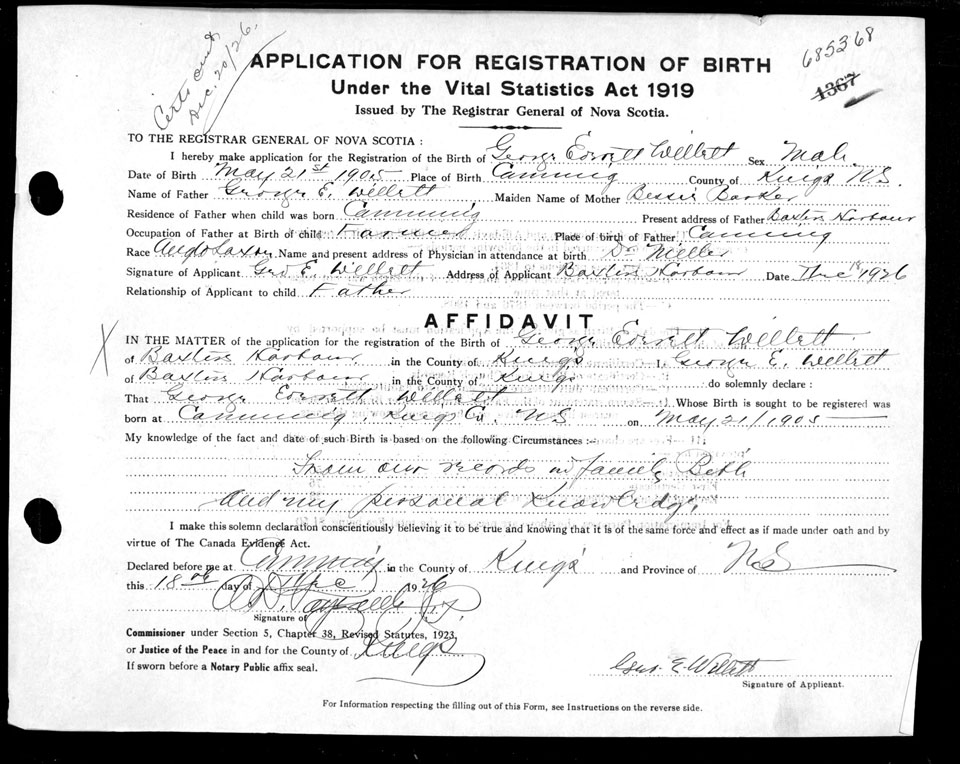 Certs
Dec. 20/26.
685368
1367
APPLICATION FOR REGISTRATION OF BIRTH
Under the Vital Statistics Act 1919
Issued by The Registrar General of Nova Scotia.
TO THE REGISTRAR GENERAL OF NOVA SCOTIA :
I hereby make application for the Registration of the Birth of George Everett Willett Sex Male.
Date of Birth May 21st 1905 Place of Birth Canning County of Kings N.S.
Name of Father George E. Willett Maiden Name of Mother Bessie Barker
Residence of Father when child was born Canning Present address of Father Baxters Harbour
Occupation of Father at Birth of child Farmer Place of birth of Father Canning
Race Anglo Saxon Name and present address of Physician in attendance at birth Dr Miller
Signature of Applicant Geo E. Willett Address of Applicant Baxters Harbour Date Dec 18 1926
Relationship of Applicant to child Father
AFFIDAVIT
X IN THE MATTER of the application for the registration of the Birth of George Everett Willett
of Baxters Harbour in the County of Kings I, George E. Willett
of Baxters Harbour in the County of Kings do solemnly declare :
That George Everett Willett Whose Birth is sought to be registered was
born at Canning, Kings Co. NS on May 21/1905
My knowledge of the fact and date of such Birth is based on the following Circumstances :—
From our records in family Bible
and my personal knowledge.
I make this solemn declaration conscientiously believing it to be true and knowing that it is of the same force and effect as if made under oath and by
virtue of The Canada Evidence Act.
Declared before me at Canning in the County of Kings and Province of N.S.
this 18th day of Dec 1926
Signature of
Commissioner under Section 5, Chapter 38, Revised Statutes, 1923,
or Justice of the Peace in and for the County of Kings
If sworn before a Notary Public affix seal.
Geo. E. Willett
Signature of Applicant.
For Information respecting the filling out of this Form, see Instructions on the reverse side.